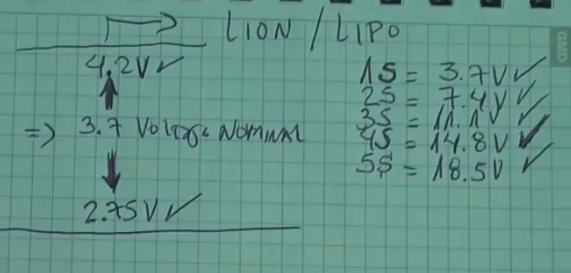 LION / LIPO
4.2V ✓
=> 3.7 Voltage Nominal
2.75V ✓
1S = 3.7V ✓
2S = 7.4V ✓
3S = 11.1V ✓
4S = 14.8V ✓
5S = 18.5V ✓
GMD